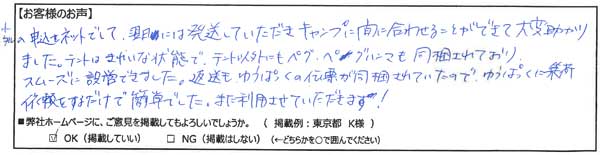 【お客様のお声】
申込もネットでして、翌日には発送していただきキャンプに間に合わせることができて大変助かり
ました。テントはきれいな状態で、テント以外にもペグ、ペグハンマも同梱されており
スムーズに設営できました。返送もゆうぱっくの伝票が同梱されていたので、ゆうぱっくに集荷
依頼をするだけで簡単でした。また利用させていただきます!
■弊社ホームページに、ご意見を掲載してもよろしいでしょうか。（掲載例：東京都 K様）
☑ OK（掲載していい） □ NG（掲載はしない）（←どちらかを○で囲んでください）